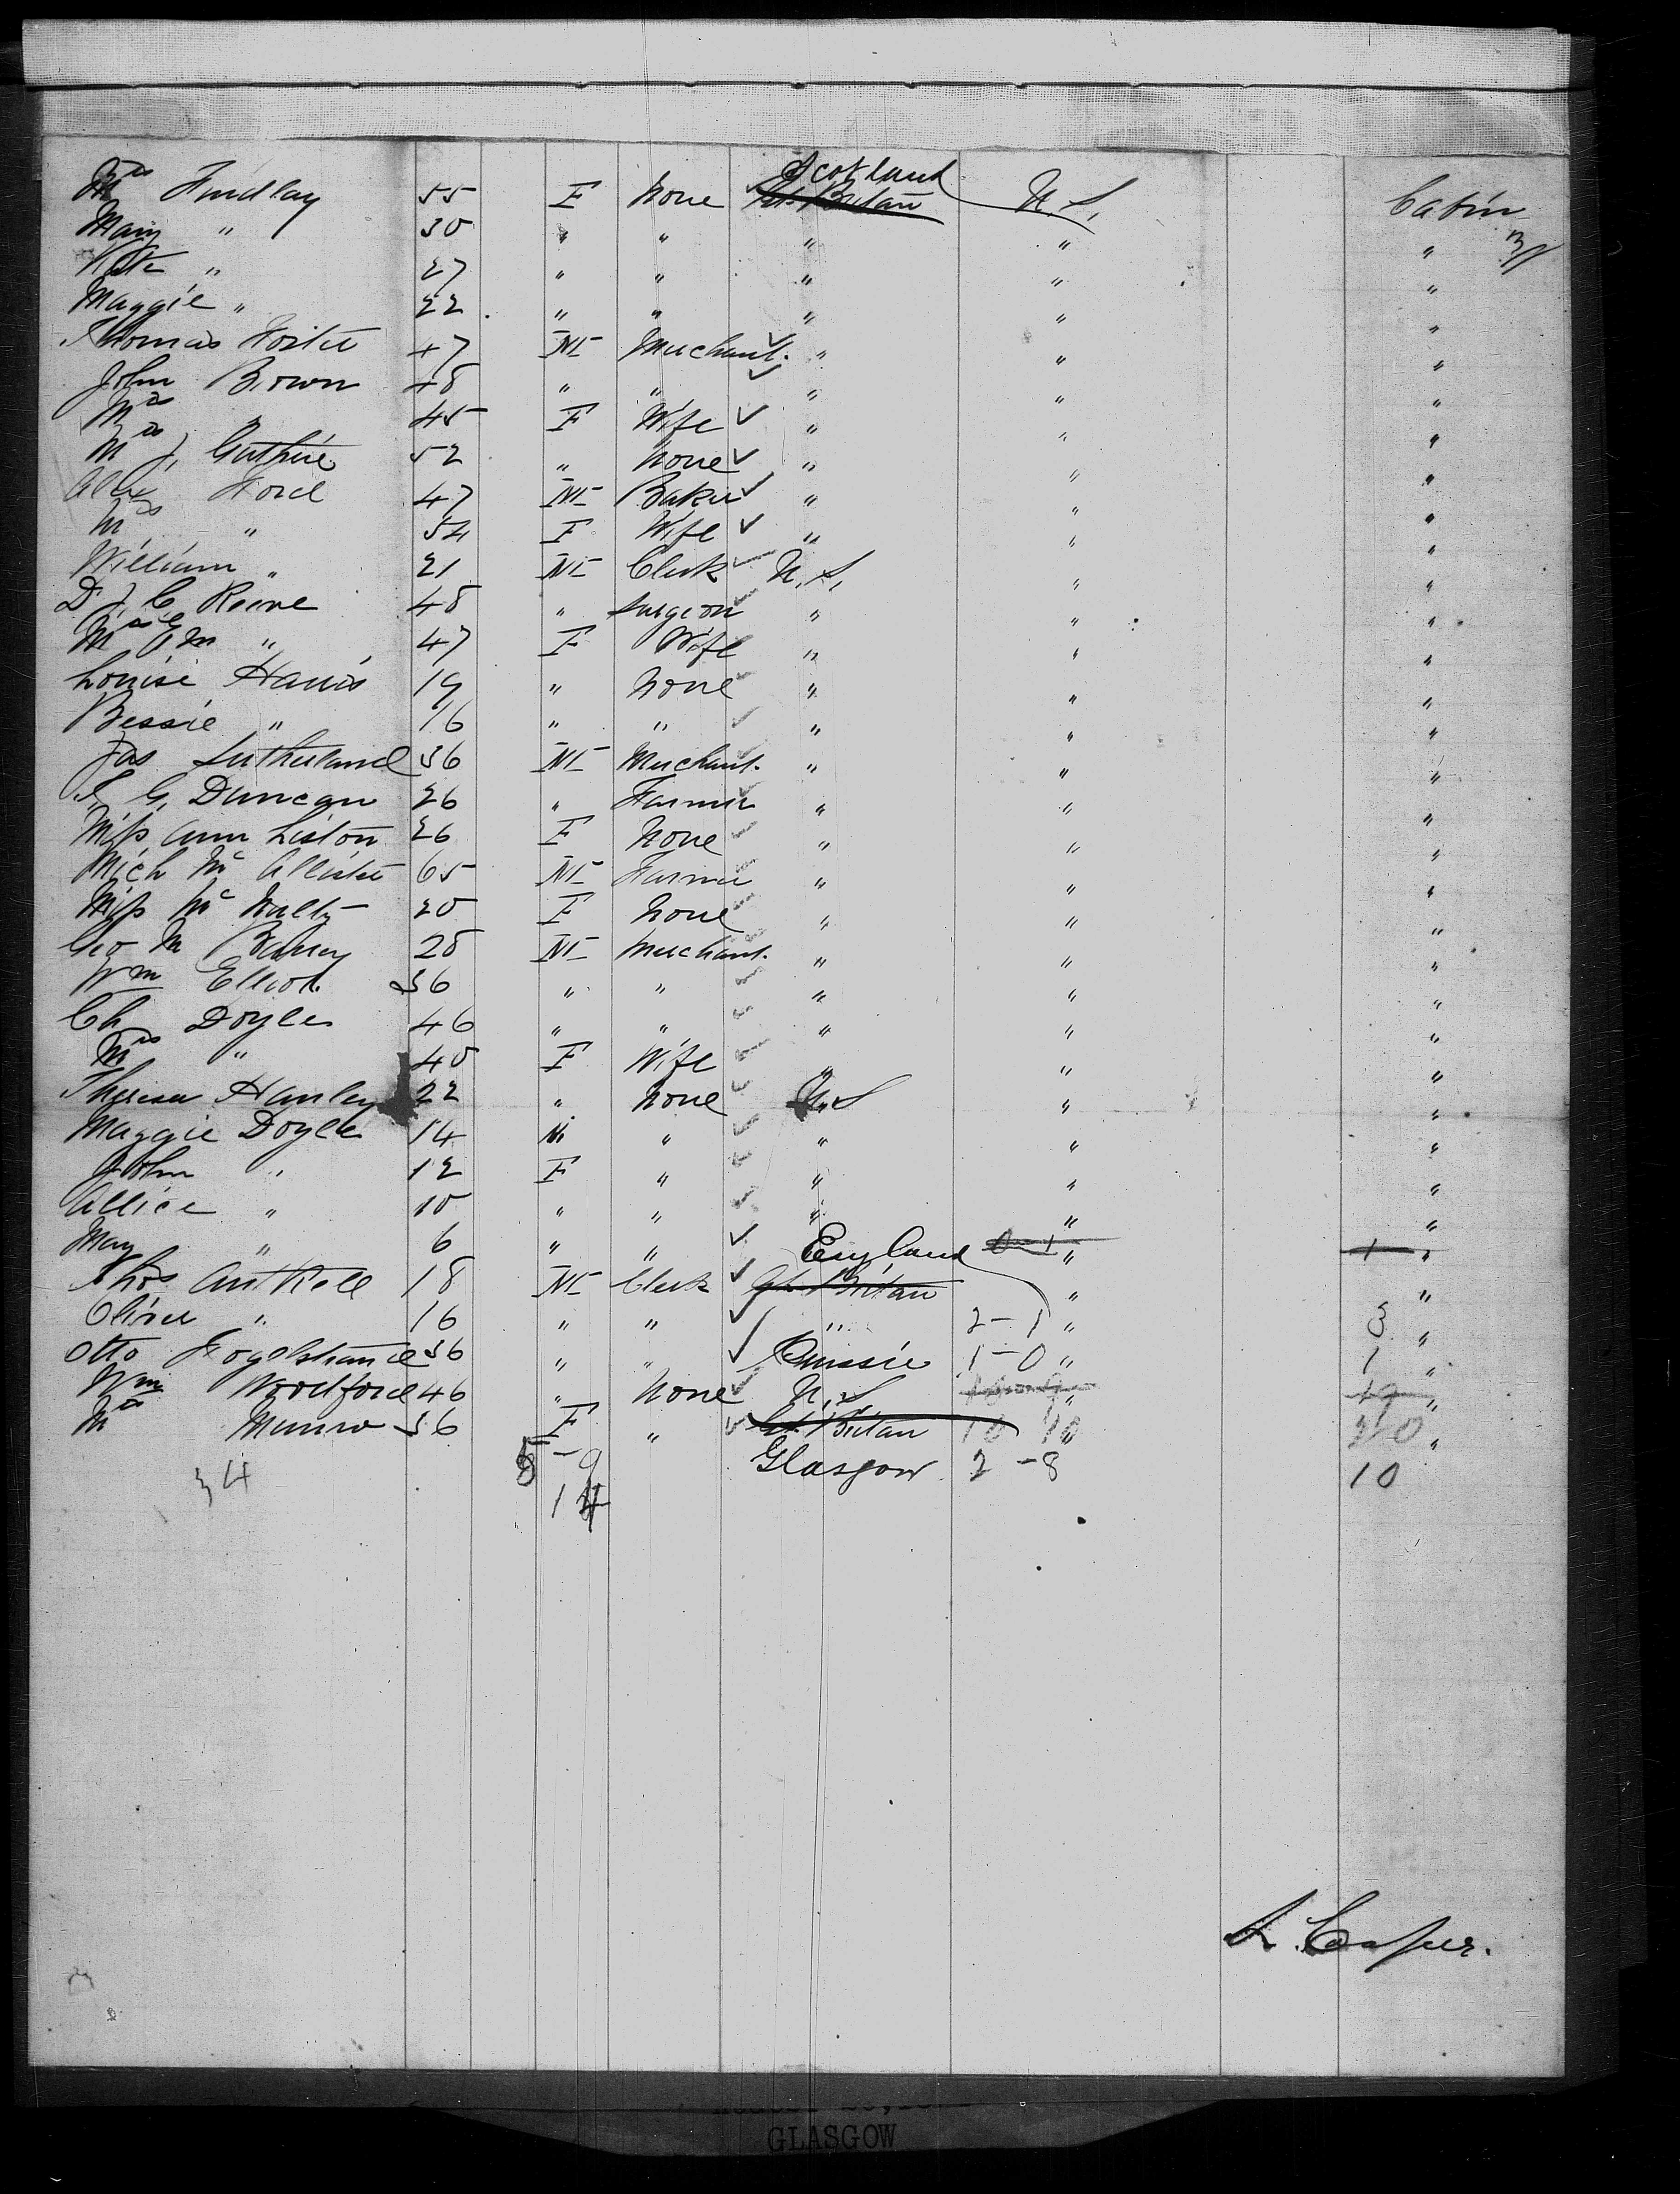 Scotland
Mrs Findlay 55 F None Gt. Britan U.S. Cabin
Mary " 30 " " " " "
Kate " 27 " " " " "
Maggie " 22 " " " " "
Thomas Foster 47 M Merchant. " " "
John Brown 48 " " " " "
Mrs " 45 F Wife " " "
Mrs J. Guthrie 52 " None " " "
Alex Ford 47 M Baker " " "
Mrs " 54 F Wife " " "
William " 21 M Clerk U.S. " "
Dr J. C. Reeve 48 " Surgeon " " "
Mrs " 47 F Wife " " "
Louise Harris 19 " None " " "
Bessie " 16 " " " " "
Jas Sutherland 36 M Merchant. " " "
G. Duncan 26 " Farmer " " "
Miss Ann Liston 26 F None " " "
Mich Mc Allister 65 M Farmer " " "
Miss Mc Nulty 20 F None " " "
Geo M 28 M Merchant. " " "
Wm Elliot 36 " " " " "
Ch Doyle 46 " " " " "
Mrs " 40 F Wife " " "
Theresa Hanley 22 " None U.S " "
Maggie Doyle 14 M " " " "
John " 12 F " " " "
Allice " 10 " " " " "
May " 6 " " England 0-1 " 1 "
Thos Antkell 18 M Clerk Gt. Britan " "
Oliver " 16 " " " 2-1 " 3 "
Otto 36 " " Prussie 1-0 " 1 "
Wm Woodford 46 " None U.S " 19 "
Mrs Munro 36 F " Gt. Britan 10 10 " "
34 5-9 Glasgow 2-8 10
14
L. Casper.
GLASGOW